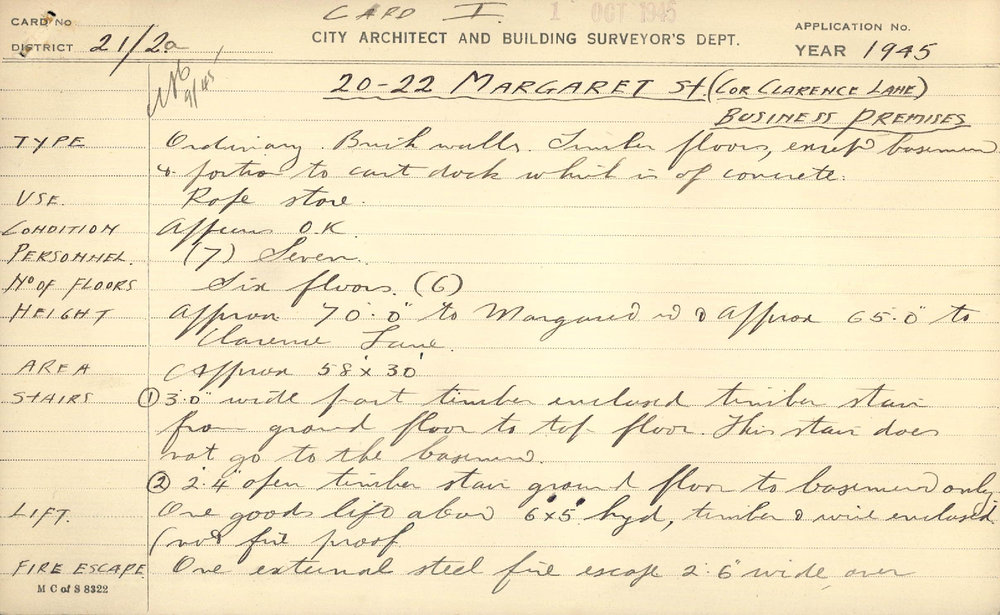 CARD I. 1 OCT 1945
CARD No
DISTRICT 21/2a
CITY ARCHITECT AND BUILDING SURVEYOR'S DEPT.
APPLICATION No.
YEAR 1945
9/45
20-22 MARGARET St. (COR CLARENCE LANE)
BUSINESS PREMISES
TYPE Ordinary. Brick walls. Timber floors, except basement
& portion to cart dock which is of concrete.
USE. Rope store.
CONDITION Appears O.K.
PERSONNEL. (7) Seven.
No OF FLOORS Six floors. (6)
HEIGHT Approx 70'.0" to Margaret St & Approx 65'.0" to
Clarence Lane.
AREA Approx 58' x 30'
STAIRS ① 3'.0" wide part timber enclosed timber stair
from ground floor to top floor. This stair does
not go to the basement.
② 2'.4" open timber stair ground floor to basement only.
LIFT. One goods lift about 6' x 5' hyd, timber & wire enclosed
(not fire proof
FIRE ESCAPE. One external steel fire escape 2'.6" wide, over
M C of S 8322